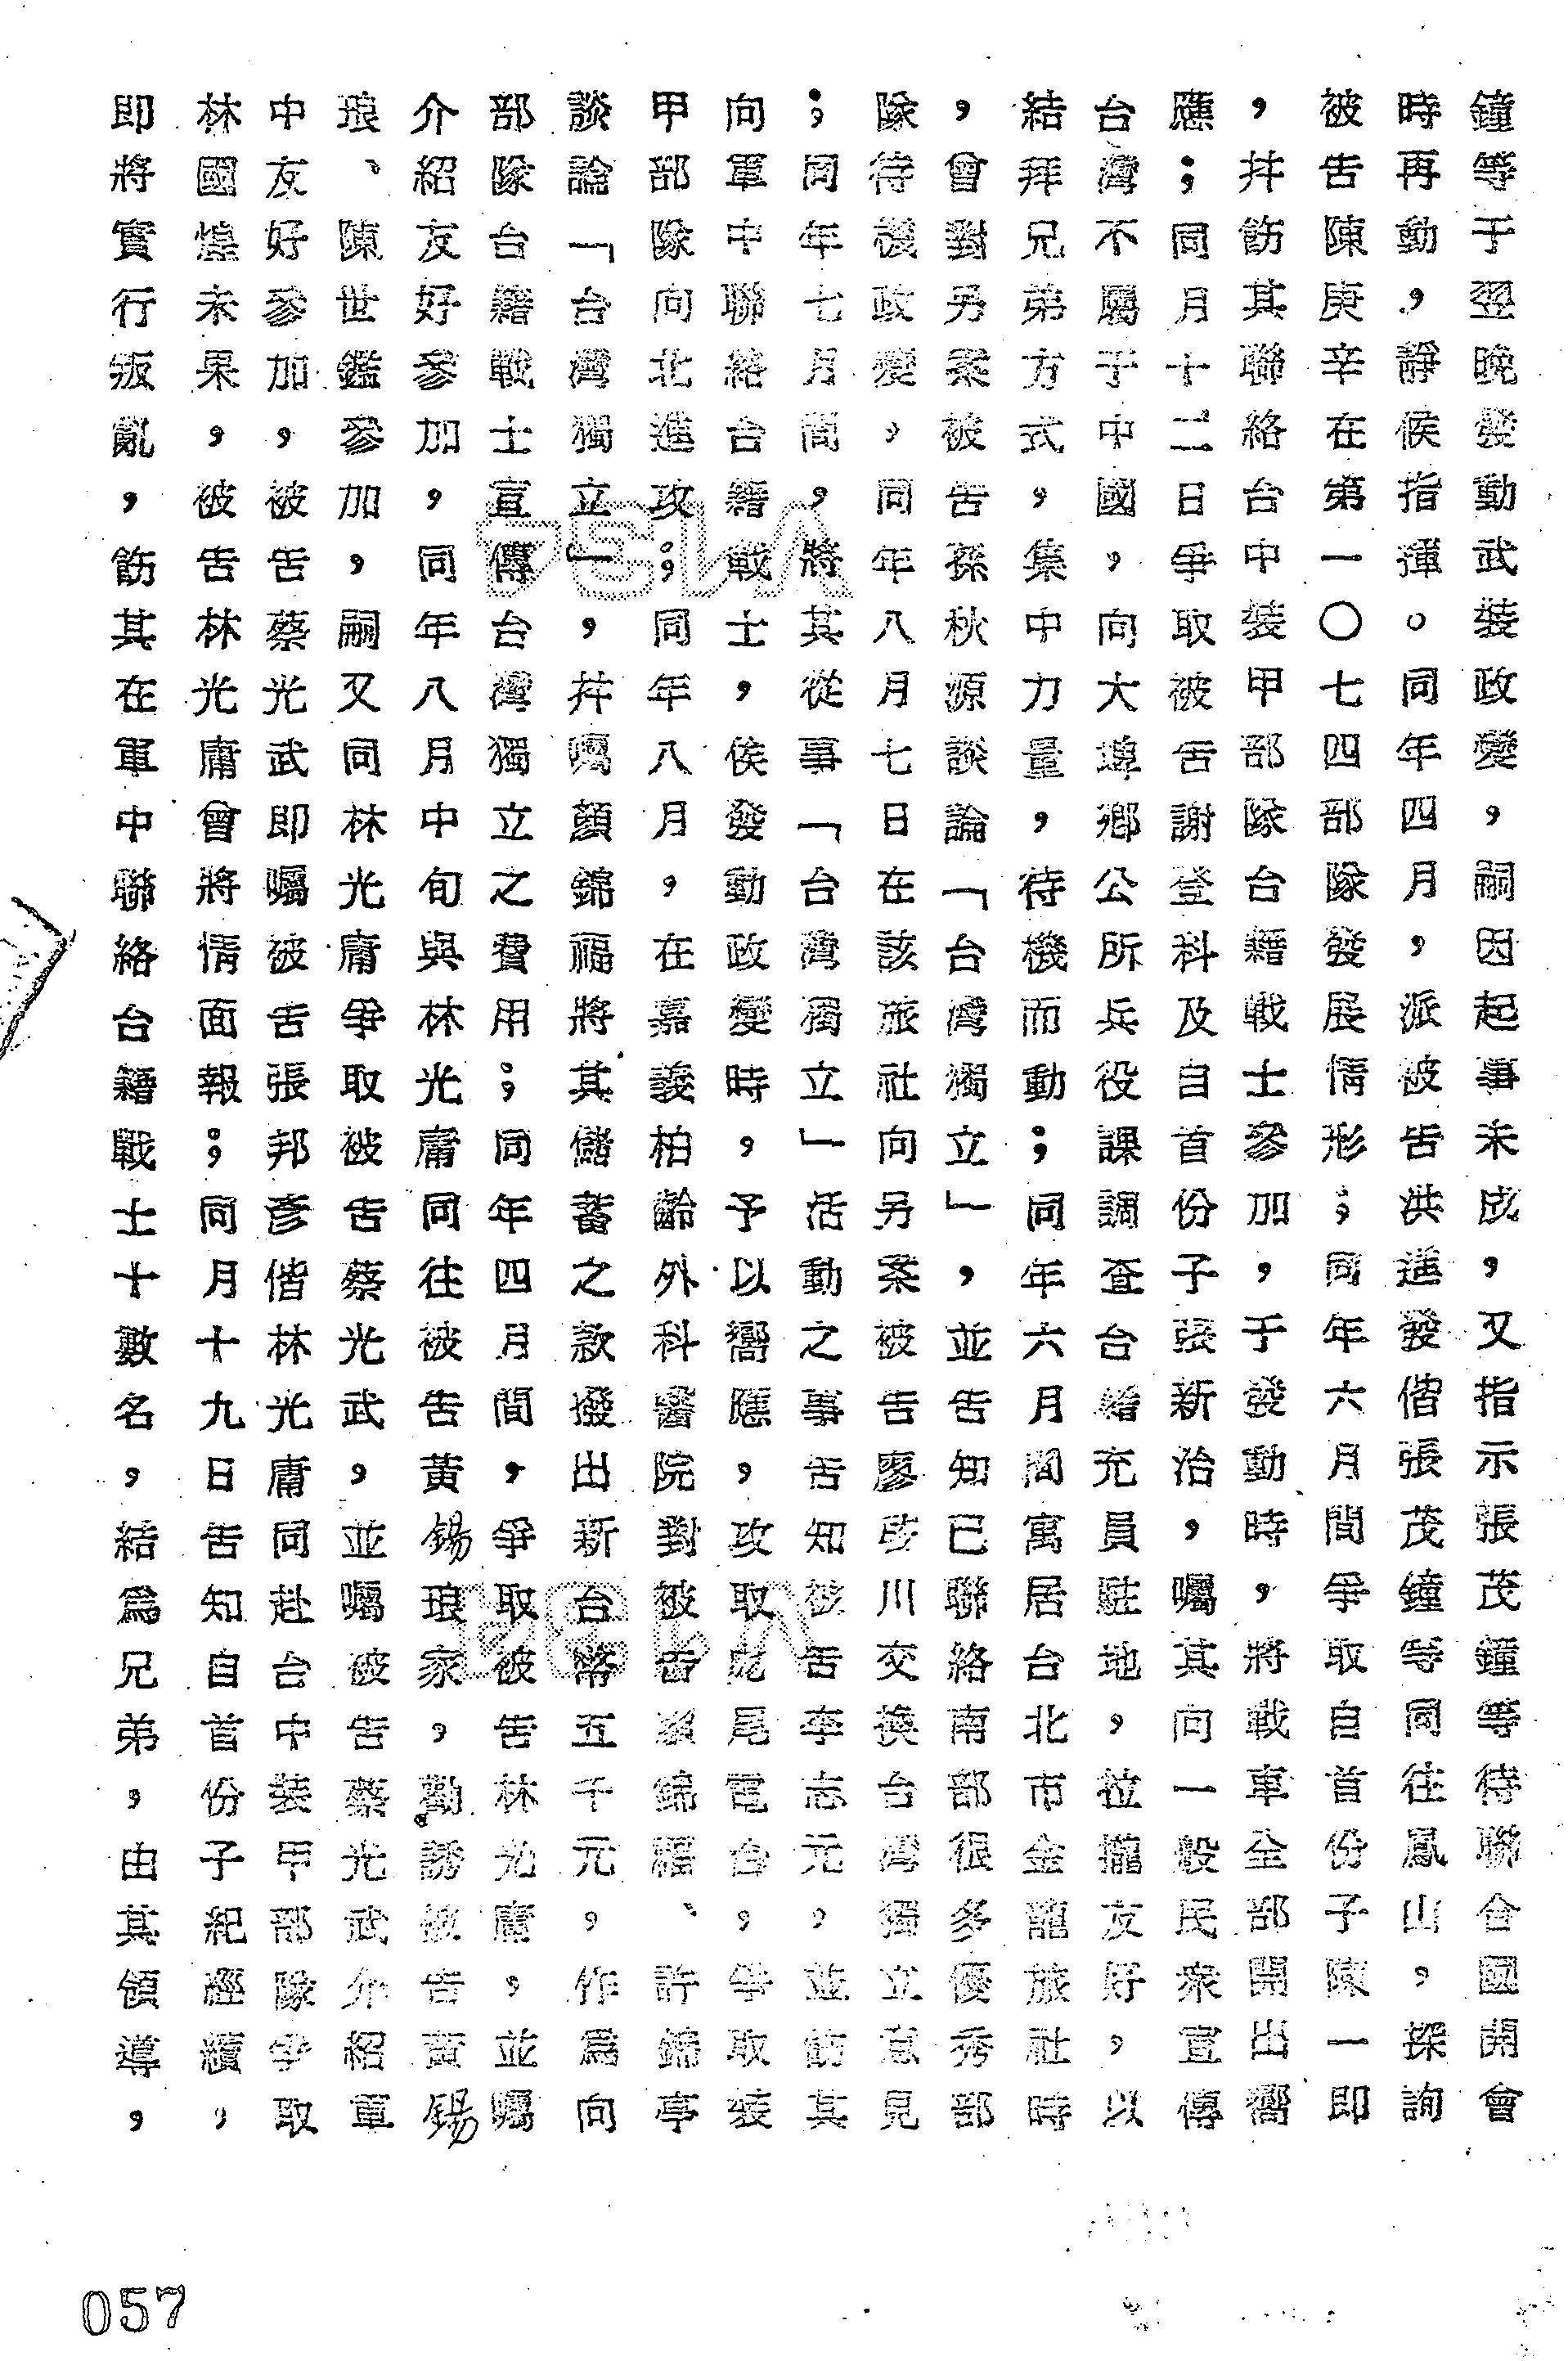 鐘等于翌晚發動武裝政變，嗣因起事未成，又指示張茂鐘等待聯合國開會
時再動，靜候指揮。同年四月，派被告洪進發偕張茂鐘等同往鳳山，探詢
被告陳庚辛在第一〇七四部隊發展情形；同年六月間爭取自首份子陳一即
，并飭其聯絡台中裝甲部隊台籍戰士參加，于發動時，將戰車全部開出嚮
應；同月十二日爭取被告謝登科及自首份子張新治，囑其向一般民衆宣傳
台灣不屬于中國，向大埤鄉公所兵役課調查台給充員駐地，拉攏友好，以
結拜兄弟方式，集中力量，待機而動；同年六月間寓居台北市金龍旅社時
，曾對另案被告孫秋源談論「台灣獨立」，並告知已聯絡南部很多優秀部
隊待機政變，同年八月七日在該旅社向另案被告廖啓川交換台灣獨立意見
；同年七月間，將其從事「台灣獨立」活動之事告知被告李志元，並飭其
向軍中聯絡台籍戰士，俟發動政變時，予以嚮應，攻取虎尾電台，爭取裝
甲部隊向北進攻；同年八月，在嘉義柏齡外科醫院對被告顏錦福、許錦亭
談論「台灣獨立」，并囑顏錦福將其儲蓄之款撥出新台幣五千元，作爲向
部隊台籍戰士宣傳台灣獨立之費用；同年四月間，爭取被告林光庸，並囑
介紹友好參加，同年八月中旬與林光庸同往被告黃錫琅家，勸誘被告黃錫
琅、陳世鑑參加，嗣又同林光庸爭取被告蔡光武，並囑被告蔡光武介紹軍
中友好參加，被告蔡光武即囑被告張邦彥偕林光庸同赴台中裝甲部隊爭取
林國煌未果，被告林光庸曾將情面報；同月十九日告知自首份子紀經續，
即將實行叛亂，飭其在軍中聯絡台籍戰士十數名，結爲兄弟，由其領導，
057